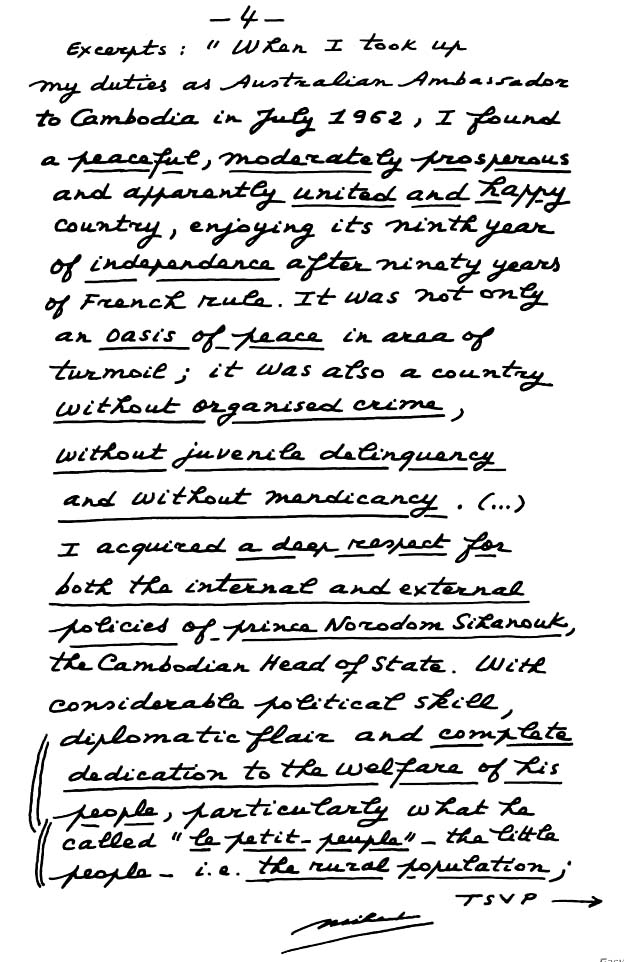 — 4 —
Excerpts : " When I took up
my duties as Australian Ambassador
to Cambodia in July 1962, I found
a peaceful, moderately prosperous
and apparently united and happy
country, enjoying its ninth year
of independence after ninety years
of French rule. It was not only
an oasis of peace in area of
turmoil ; it was also a country
without organised crime,
without juvenile delinquency
and without mendicancy. (...)
I acquired a deep respect for
both the internal and external
policies of prince Norodom Sihanouk,
the Cambodian Head of State. With
considerable political skill,
diplomatic flair and complete
dedication to the welfare of his
people, particularly what he
called "le petit-peuple" — the little
people — i.e. the rural population ;
TSVP →